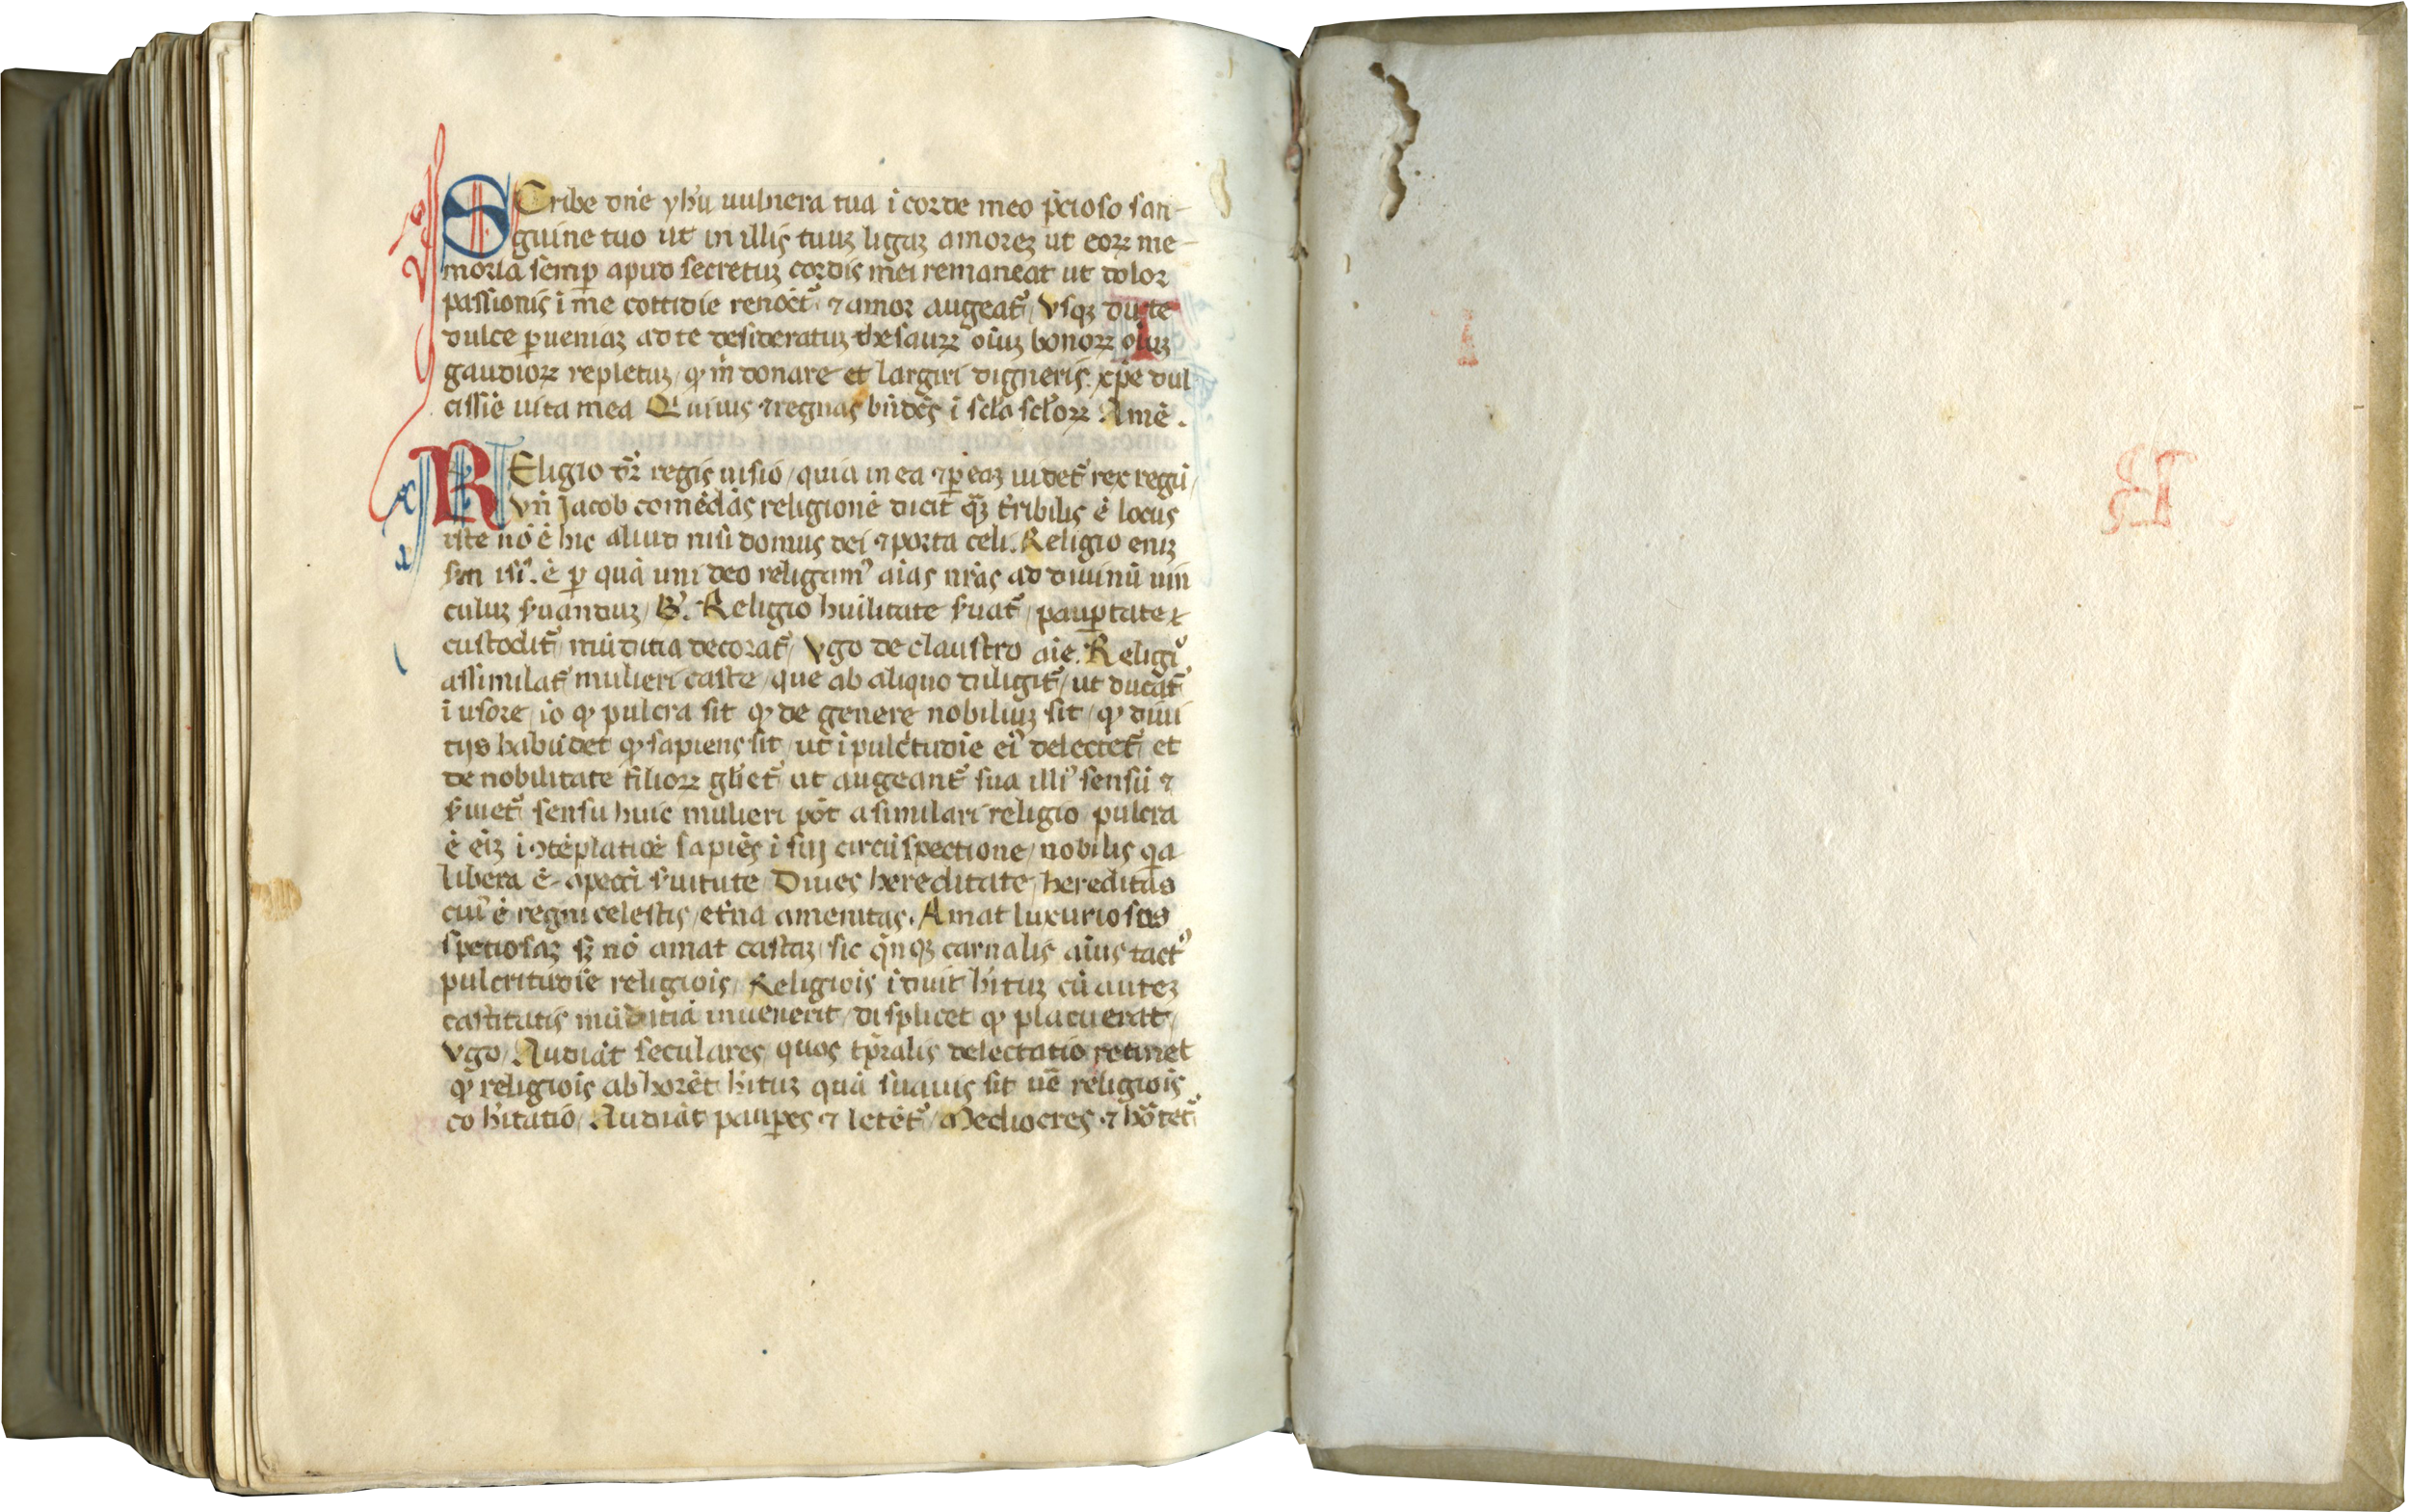 SCribe dn̄e yhū uulnera tua ī corde meo p̄cioso san-
guine tuo ut in illis tuuꝫ legaꝫ amoreꝫ ut eoꝝ me-
moria semꝑ apud secretuꝫ cordis mei remaneat ut dolor
passionis ī me cottidie renoēt᷑ ⁊ amor augeat᷑ / vsqꝫ du te
dulce ꝑueniaꝫ ad te desideratuꝫ thesauꝝ oīuꝫ bonoꝝ oīuꝫ
gaudioꝝ repletuꝫ / qꝫ m̄ donare et largiri digneris. xp̄e dul
cissīe uita mea Q uiuis ⁊ regnas bn̄dēs ī scl̄a scl̄oꝝ Amē.
REligio dr̄ regis uisio / quia in ea ⁊ ꝑ eaꝫ uidet᷑ rex regū /
vn̄ Jacob comēdās religionē dicit qꝫ t̄ribilis ē locus
iste nō ē hic aliud nisi domus dei ⁊ porta celi. Religio eniꝫ
scn̄ isi᷑. ē ꝑ quā uni deo religamꝰ aīas nr̄as ad diuinū uin
culuꝫ s̄uanduꝫ / B᷑. Religio huīlitate s̄uat᷑ / pauꝑtate
custodit᷑ mūditia decorat᷑ / vgo de claustro aīe. Religiꝰ
assimilat᷑ mulieri caste / que ab aliquo diligit᷑ / ut ducat᷑
ī uxore / iō qꝫ pulcra sit qꝫ de genere nobiliuꝫ sit / qꝫ diui
tijs habūdet qꝫ sapiens sit / ut ī pulc̄tudīe eiꝰ delectet᷑ et
de nobilitate filioꝝ gl̄iet᷑ ut augeant᷑ sua illiꝰ sensū ⁊
s̄uiet᷑ sensu huic mulieri pōt asimilari religio pulcra
ē eīꝫ ī ꝯtēplatiōē sapiēs ī sui circūspectione / nobilis qa
libera ē a peccī s̄uitute / Diues hereditate / hereditas
cuiꝰ ē regni celestis / et̄na amenitas. Amat luxuriosus
spetiosaꝫ sꝫ nō amat castaꝫ / sic qn̄qꝫ carnalis aīus tactꝰ
pulcritudīe religiōis / Religiōis īduit hītuꝫ cū auteꝫ
castitatis mūditiā inuenerit / displicet qꝫ placuerat /
vgo / Audiāt seculares quos tp̄ralis delectatio retinet
qꝫ religiōis abhorēt hītuꝫ quā suauis sit uē religiōis
cohītatiō / Audiāt pauꝑes ⁊ letēt᷑ / Mediocres ⁊ hōtēt᷑